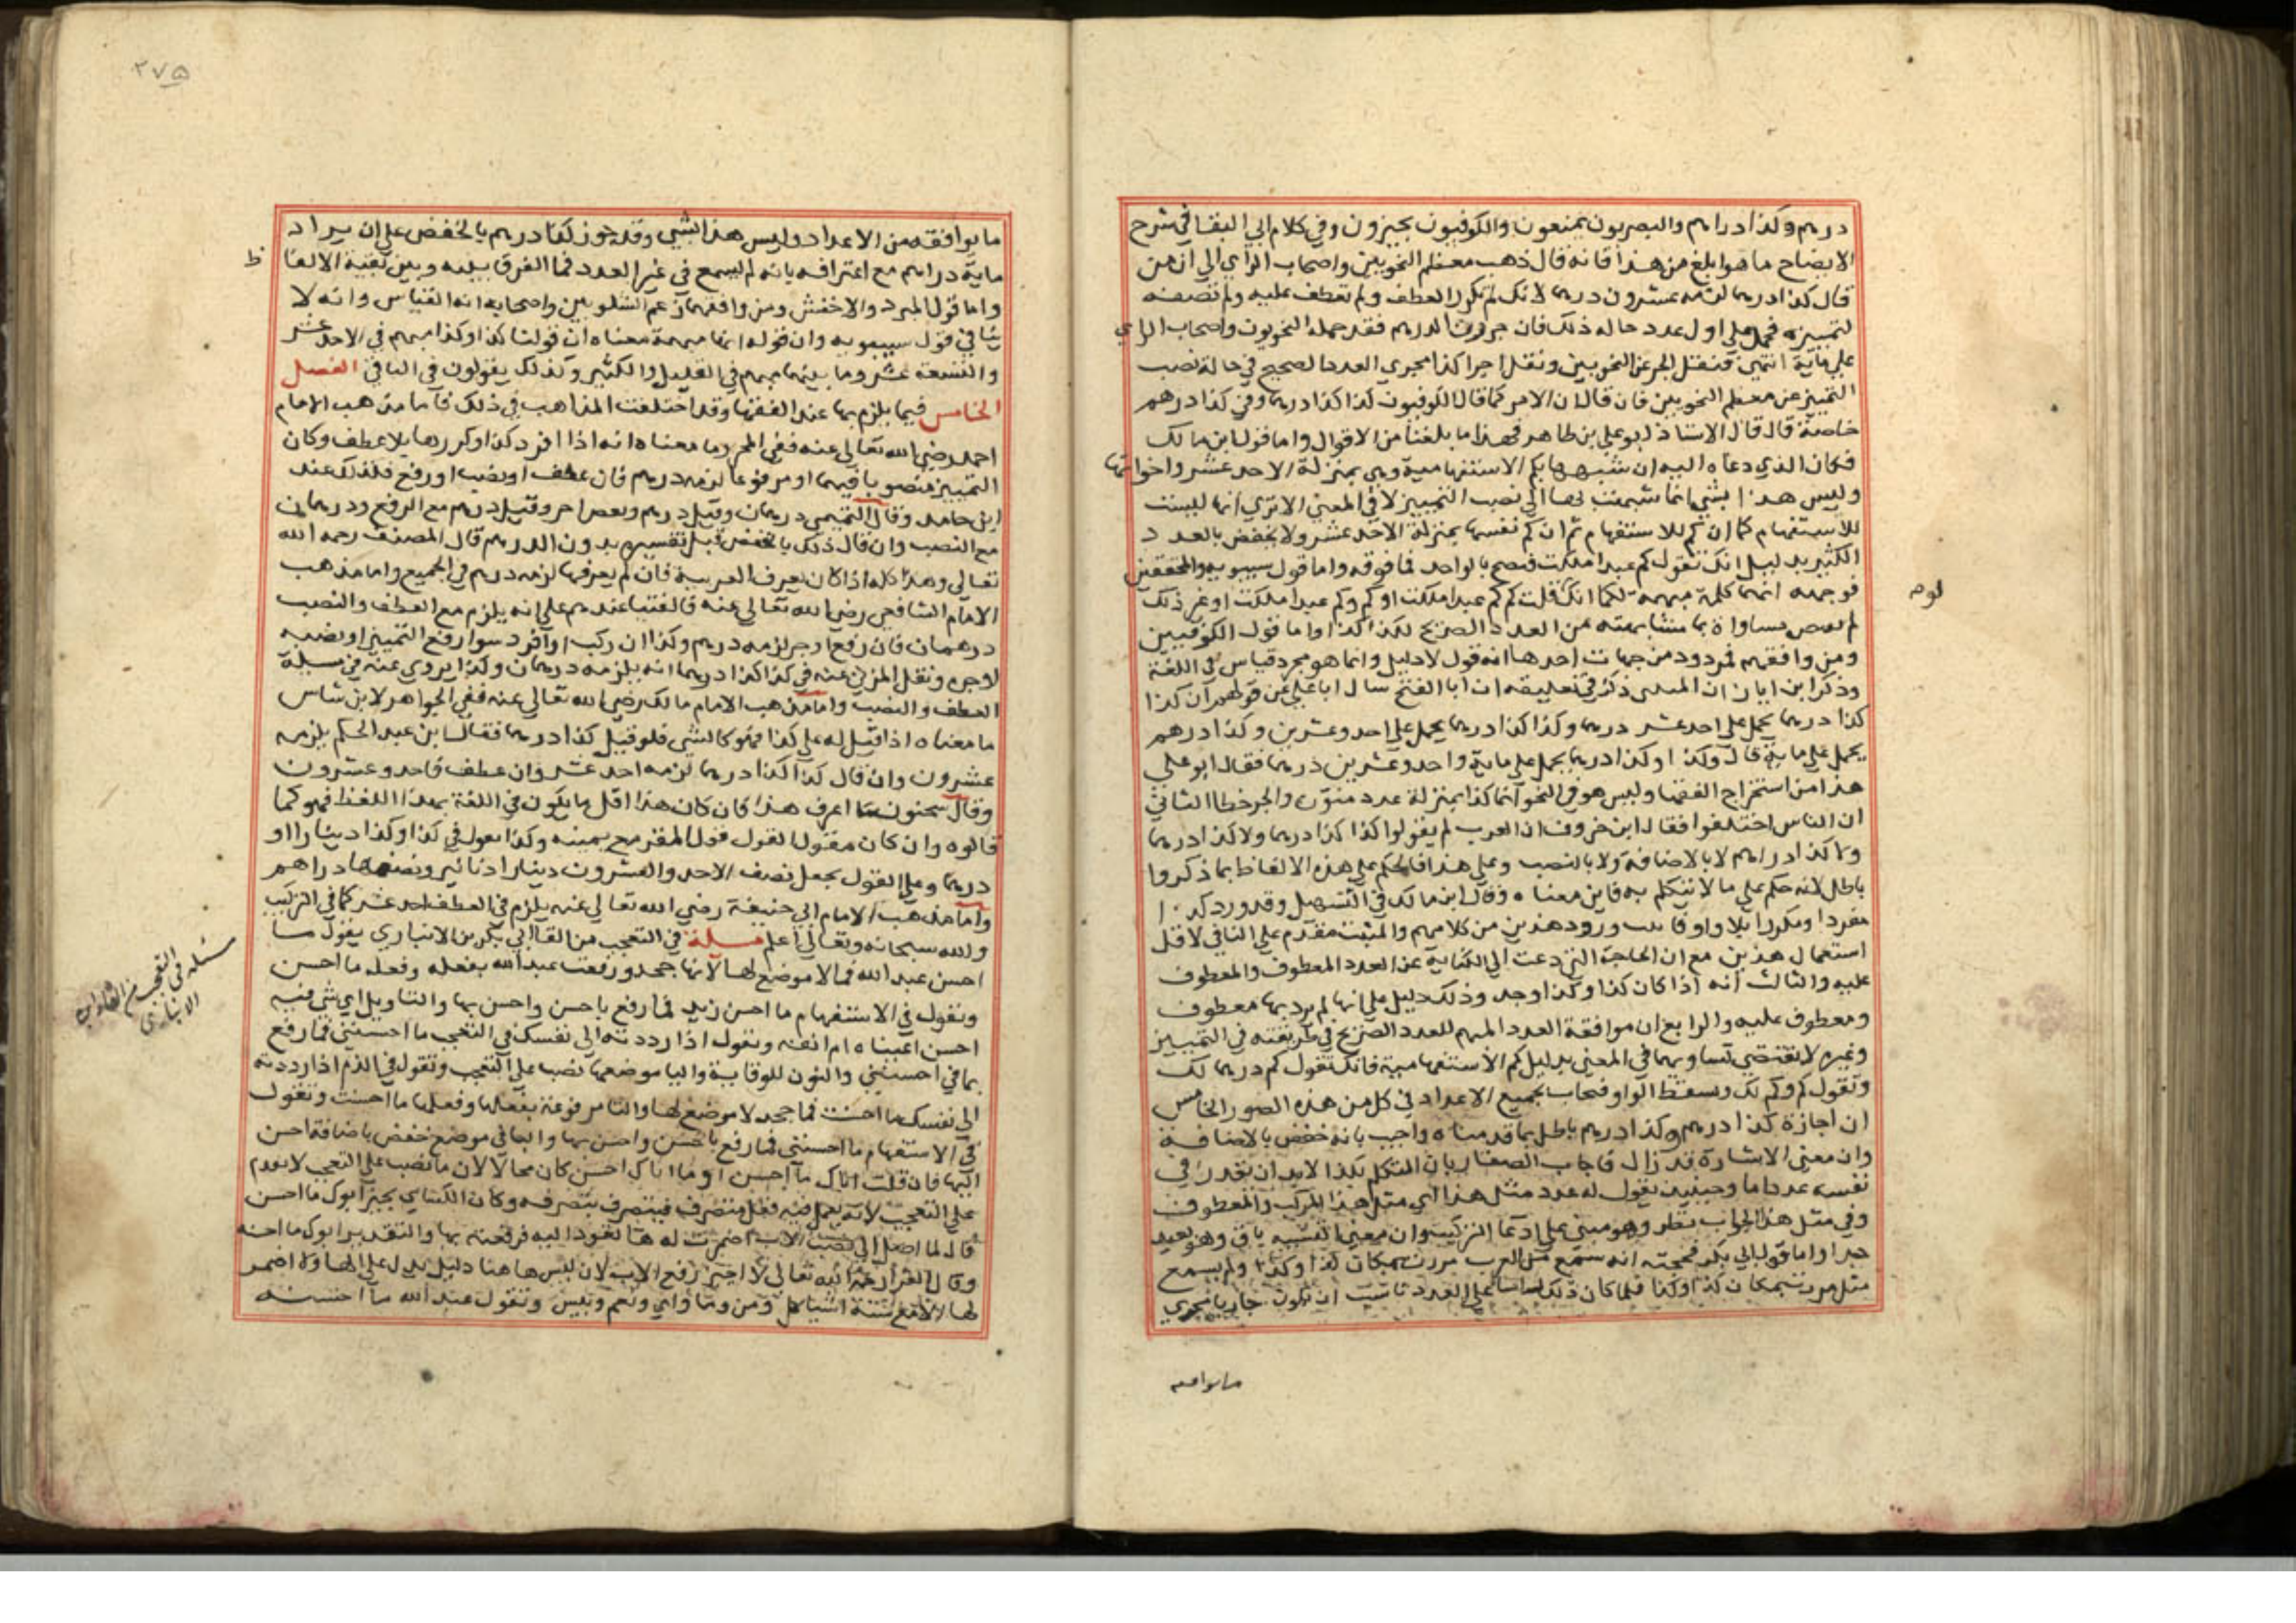 درهم وكذا دراهم والبصريون يمنعون والكوفيون يجيزون وفي كلام ابي البقا في شرح
الايضاح ما هو ابلغ من هذا فانه قال ذهب معظم النحويين واصحاب الراي الي ان من
قال كذا درهما لزمه عشرون درهما لانك لم تكرر العطف ولم تعطف عليه ولم تضفه
لتمييزه فحمل علي اول عدد حاله ذلك فان جررت الدرهم فقد حمله النحويون واصحاب الراي
علي ماية انتهي فنقل الجر عن النحويين ونقل اجرا كذا مجري العدد الصحيح في حالة نصب
التمييز عن معظم النحويين فان قال ان الامر كما قال الكوفيون كذا كذا درهما وفي كذا درهم
خاصة قال قال الاستاذ ابو علي بن طاهر فهذا ما بلغنا من الاقوال واما قول ابن مالك
فكان الذي دعاه اليه ان شبهها بكم الاستفهامية وهي بمنزلة الاحد عشر واخواتها
وليس هذا بشي انما شبهت بها الي نصب التمييز لا في المعني الا تري انها ليست
للاستفهام كما ان كم للاستفهام ثم ان كم نفسها بمنزلة الاحد عشر ولا يخفض بالعدد
الكثير بدليل انك تقول كم عبدا ملكت فيصح بالواحد فما فوقه واما قول سيبويه والمحققين
فوجهه انها كلمة مبهمة كما انك قلت كم كم عبدا ملكت او كم وكم عبدا ملكت او غير ذلك
لم يقتض مساواة ما تشابهته من العدد الصريح لكذا كذا واما قول الكوفيين
ومن وافقهم فمردود من جهات احدها انه قول لا دليل وانما هو مجرد قياس في اللغة
وذكر ابن اياز ان ذكر في تعليقه ان ابا الفتح سال ابا علي عن قولهم ان كذا
كذا درهما يحمل علي احد عشر درهما وكذا كذا درهما يحمل علي احد وعشرين وكذا درهم
يحمل علي ماية قال وكذا وكذا درهما يحمل علي ماية واحد وعشرين درهما فقال ابو علي
هذا من استخراج الفقها وليس هو في النحو انما كذا بمنزلة عدد منون والجر خطا الثاني
ان الناس اختلفوا فقال ابن خروف ان العرب لم يقولوا كذا كذا درهما ولا كذا درهما
ولا كذا دراهم لا بالاضافة ولا بالنصب وعلي هذا فالحكم علي هذه الالفاظ بما ذكروا
باطل لانه حكم علي ما لا يتكلم به فاين معناه وقال ابن مالك في التسهيل وقد ورد كذا
مفردا ومكررا بلا واو فاثبت ورود هذين من كلامهم والمثبت مقدم علي النافي لا قل
استعمال هذين مع ان الحاجة التي دعت الي الكناية عن العدد المعطوف والمعطوف
عليه والثالث انه اذا كان كذا وكذا وجد وذلك دليل علي انها لم يرد بها معطوف
ومعطوف عليه والرابع ان موافقة العدد المبهم للعدد الصريح في طريقته في التمييز
وغيره لا تقتضي تساويهما في المعني بدليل كم الاستفهامية فانك تقول كم درهما لك
وتقول كم وكم لك وبسقط الواو فتجاب بجميع الاعداد في كل من هذه الصور الخامس
ان اجازة كذا درهم وكذا درهم باطل بما قدمناه واجيب بانه خفض بالاضافة
وان معني الاشارة قد زال فاجاب الصفار بان المتكلم بكذا لابد ان يقدر في
نفسه عددا ما وحينئذ يقول له عدد مثل هذا اي مثل هذا المركب والمعطوف
وفي مثل هذا الجواب نظر وهو مبني علي ادعا التركيب وان معني التشبيه باق وهو بعيد
جدا واما قول ابي بكر فحجته انه سمع من العرب مررت بمكان كذا وكذا ولم يسمع
مثل مررت بمكان كذا وكذا فلما كان ذلك علي العدد ان تكون جاريا مجري
ما يوافقه
ما يوافقه من الاعداد وليس هذا بشي وقد جوز كذا درهم بالخفض علي ان يراد
ماية دراهم مع اعترافه بانه لم يسمع في غير العدد فما الفرق بينه وبين بقية الالفاظ
واما قول المبرد والاخفش ومن وافقهما زعم الشلوبين واصحابه انه القياس وانه لا
ينافي قول سيبويه وان قوله انها مبهمة معناه ان قولنا كذا وكذا مبهم في الاحد عشر
والتسعة عشر وما بينهما مبهم في القليل والكثير وكذلك يقولون في الباقي الفصل
الخامس فيما يلزم بها عند الفقها وقد اختلفت المذاهب في ذلك فاما مذهب الامام
احمد رضي الله تعالي عنه ففي المحرر ما معناه انه اذا افرد كذا وكررها بلا عطف وكان
التمييز منصوبا فيهما او مرفوعا لزمه درهم فان عطف او نصب او رفع فكذلك عند
ابن حامد وقال التميمي درهمان وقيل درهم وبعض اخر وقيل درهم مع الرفع ودرهمان
مع النصب وان قال ذلك بالخفض قبل تفسيره بدون الدرهم قال المصنف رحمه الله
تعالي وهذا كله اذا كان يعرف العربية فان لم يعرفها لزمه درهم في الجميع واما مذهب
الامام الشافعي رضي الله تعالي عنه فالفتيا عندهم علي انه يلزم مع العطف والنصب
درهمان فان رفع او جر لزمه درهم وكذا ان ركب او افرد سوا رفع التمييز او نصبه
او جره ونقل المزني عنه في كذا كذا درهما انه يلزمه درهمان وكذا يروي عنه في مسيلة
العطف والنصب واما مذهب الامام مالك رضي الله تعالي عنه ففي الجواهر لابن شاس
ما معناه اذا قيل له علي كذا فهو كالشي فلو قيل كذا درهما فقال ابن عبد الحكم يلزمه
عشرون وان قال كذا كذا درهما لزمه احد عشر وان عطف فاحد وعشرون
وقال سحنون ما اعرف هذا فان كان هذا اقل ما يكون في اللغة بهذا اللفظ فهو كما
قالوه وان كان مقولا لقول قول المقر مع يمينه وكذا يقول في كذا وكذا دينارا او
درهما وعلي القول يجعل نصف الاحد والعشرون دينارا دنانير ونصفها دراهم
واما مذهب الامام ابي حنيفة رضي الله تعالي عنه يلزم في العطف احد عشر كما في التركيب
والله سبحانه وتعالي اعلم مسيلة في التعجب من القا ابي بكر بن الانباري يقول ما
احسن عبد الله فما لا موضع لها لانها جحد ورفعت عبد الله بفعله وفعله ما احسن
وتقول في الاستفهام ما احسن زيد فما رفع باحسن واحسن بها والتاويل اي شي فيه
احسن اعيناه ام انفه وتقول اذا رددته الي نفسك في التعجب ما احسنني فما رفع
بما في احسنني والنون للوقاية واليا موضعها نصب علي التعجب وتقول في الذم اذا رددته
الي نفسك ما احسنت فما جحد لا موضع لها والتا مرفوعة بفعلها وفعلها ما احسنت وتقول
في الاستفهام ما احسنني فما رفع باحسن واحسن بها واليا في موضع خفض باضافة احسن
اليها فان قلت اباك ما احسن او ما اباك احسن كان محالا لان ما نصب علي التعجب لا يقدم
علي التعجب لانه لم يعمل فيه فعل متصرف فيتصرف بتصرفه وكان الكسائي يجيز ابوك ما احسن
قال لما لم اصل الي نصب الاب اضمرت له ها تعود اليه فرفعته بها والتقدير ابوك ما احسنه
وقال الفرا رحمه الله تعالي لا اجيز رفع الاب لان ليس ها هنا دليل يدل علي الها ولا اضمر
لها الا مع ستة اشيا كل ومن وما واي ونعم وبئس وتقول عبد الله ما احسنه
ظ
مسئله في التعجب من القا ابن
الانباري
٢٧٥